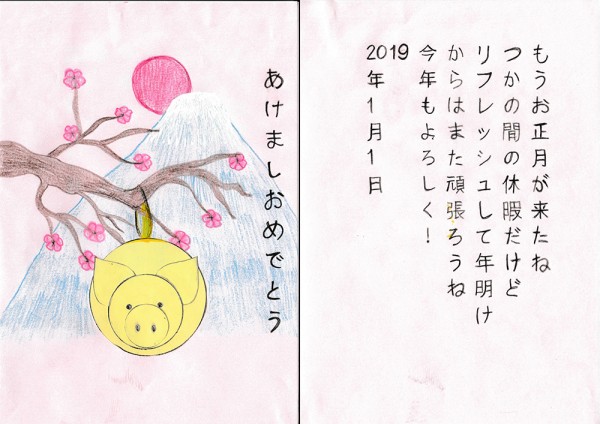 あけましおめでとう
もうお正月が来たね
つかの間の休暇だけど
リフレッシュして年明け
からはまた頑張ろうね
今年もよろしく！
2019年1月1日